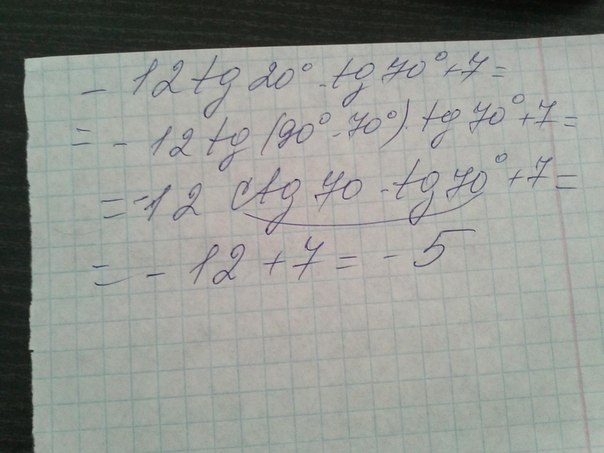 - 12 tg 20° · tg 70° + 7 =
= - 12 tg (90° - 70°) · tg 70° + 7 =
= -12 ctg 70 · tg 70° + 7 =
= - 12 + 7 = - 5